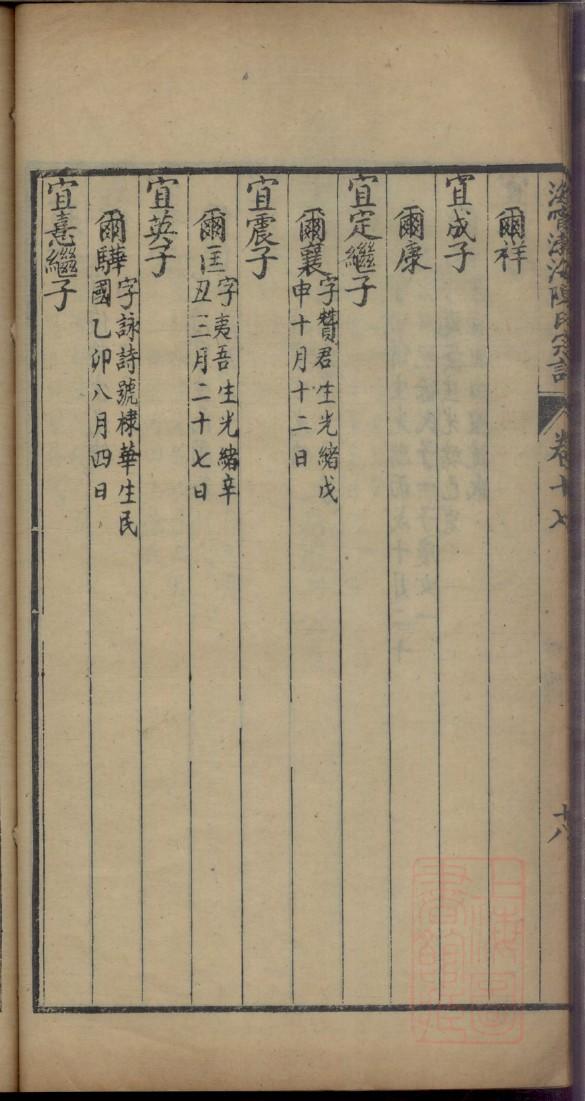 海寧渤海陳氏宗譜
卷十七
十八
爾祥
宜成子
爾康
宜定繼子
爾襄 字贊君生光緒戊
申十月十二日
宜震子
爾匡 字夷吾生光緒辛
丑三月二十七日
宜英子
爾驊 字詠詩號棣華生民
國乙卯八月四日
宜憙繼子